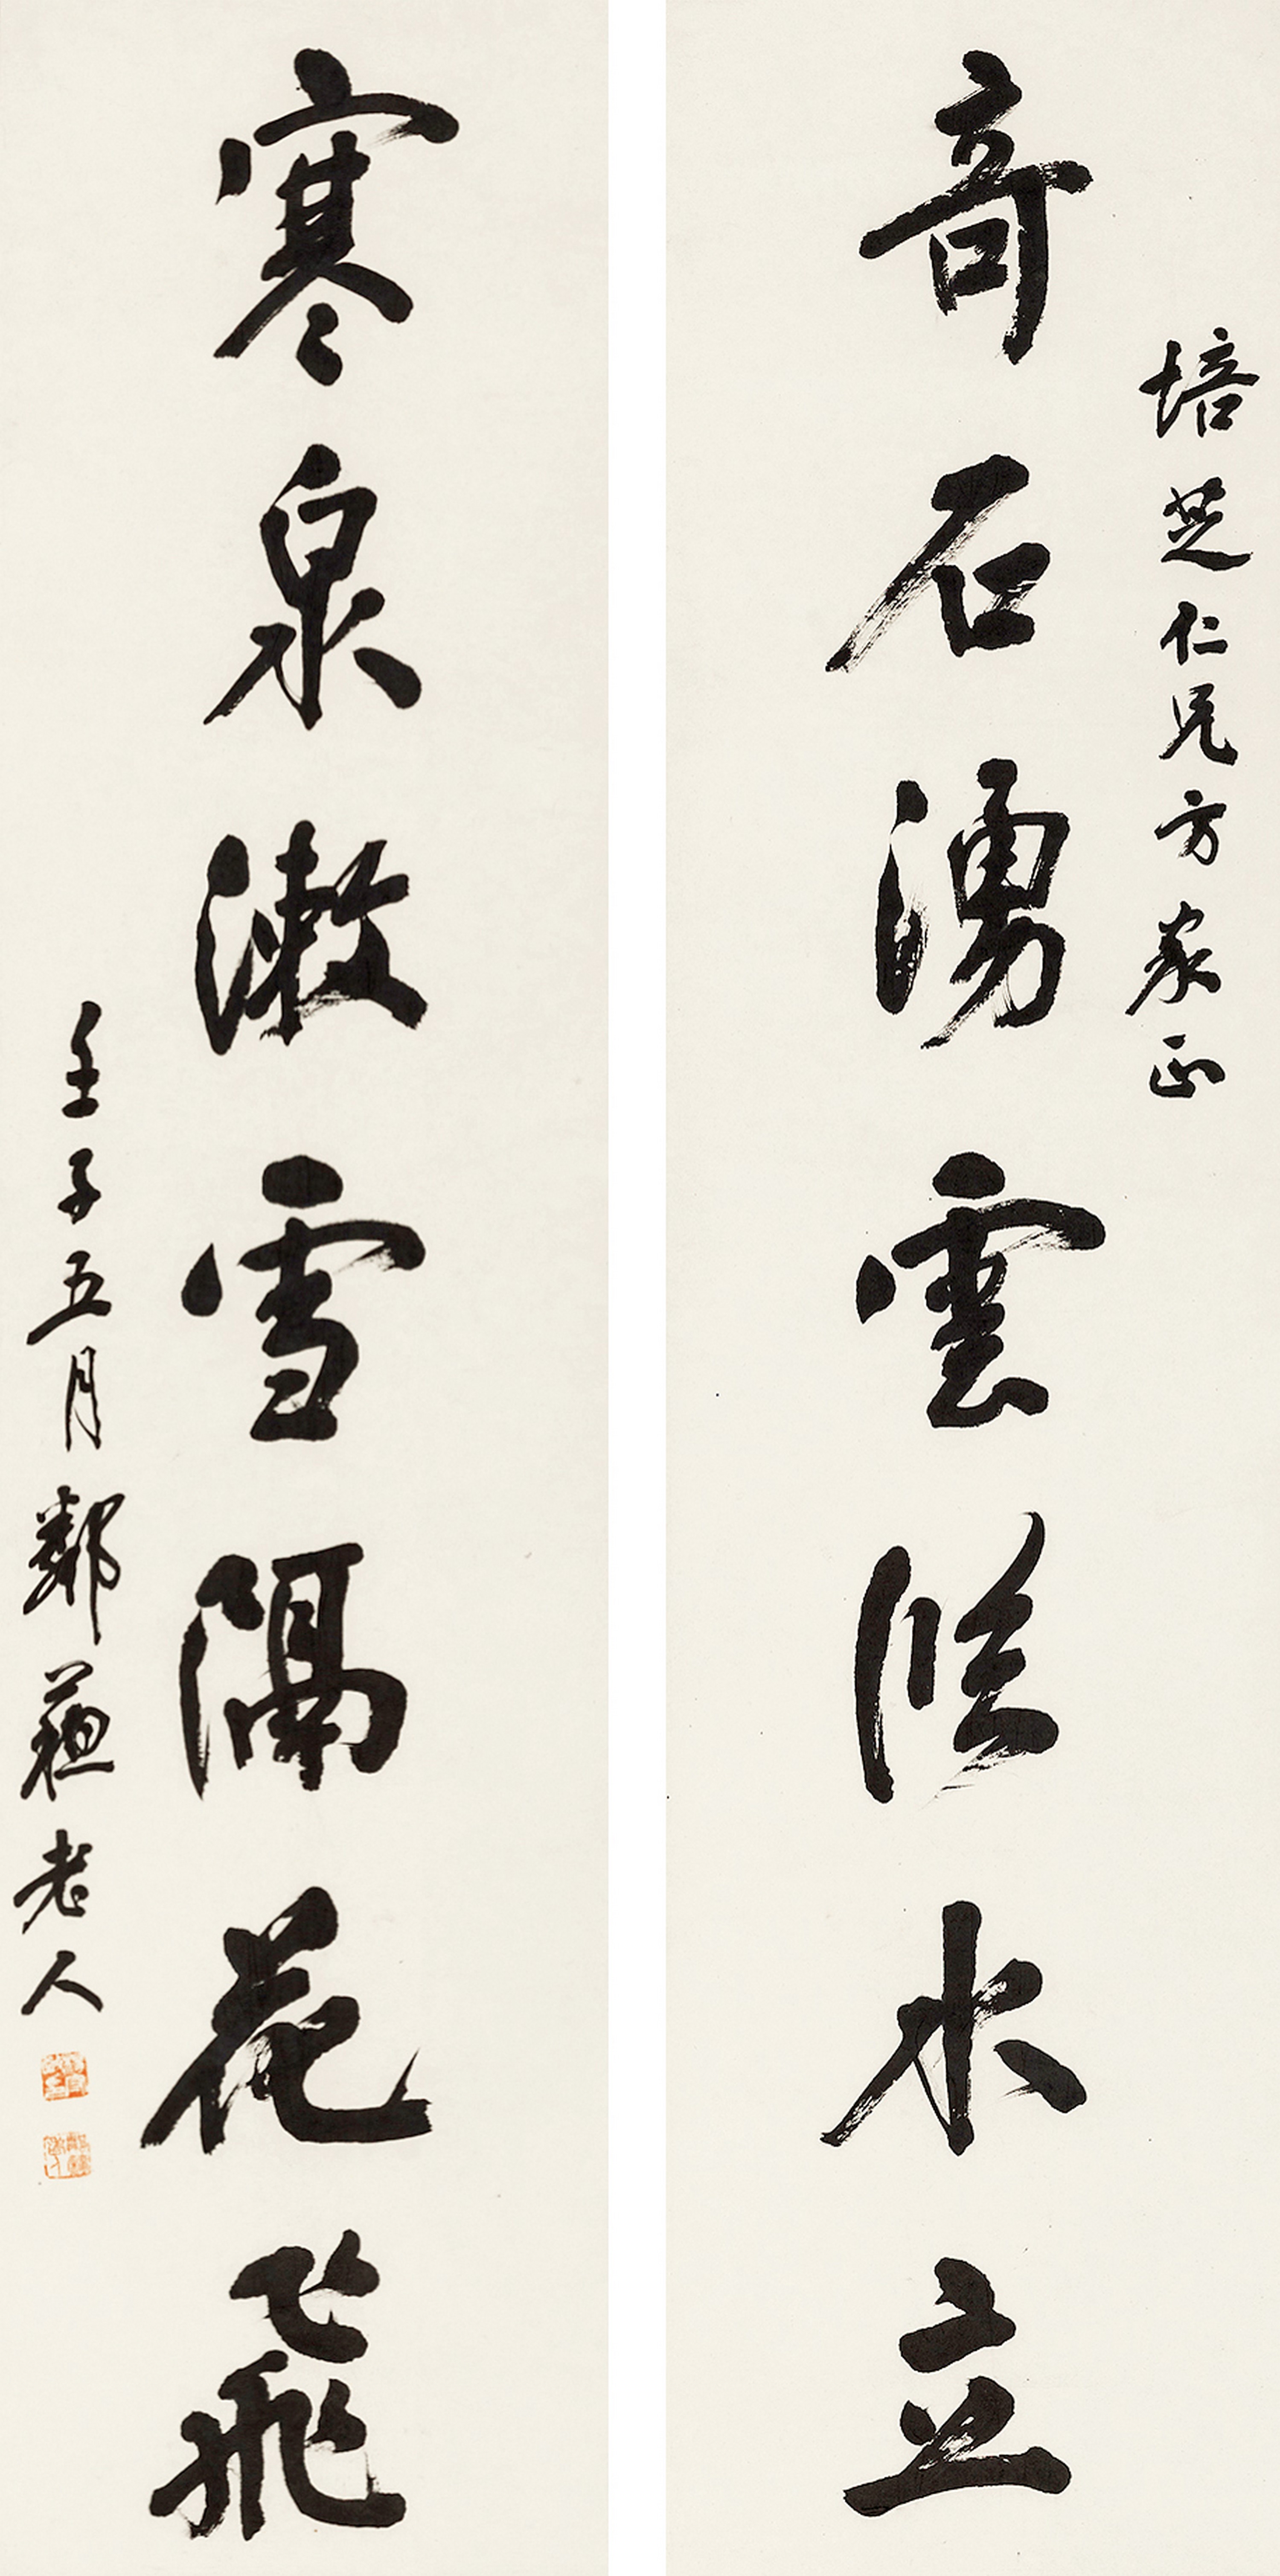 培芝仁兄方家正
奇石湧雲臨水立
寒泉漱雪隔花飛
壬子五月鄰蘇老人